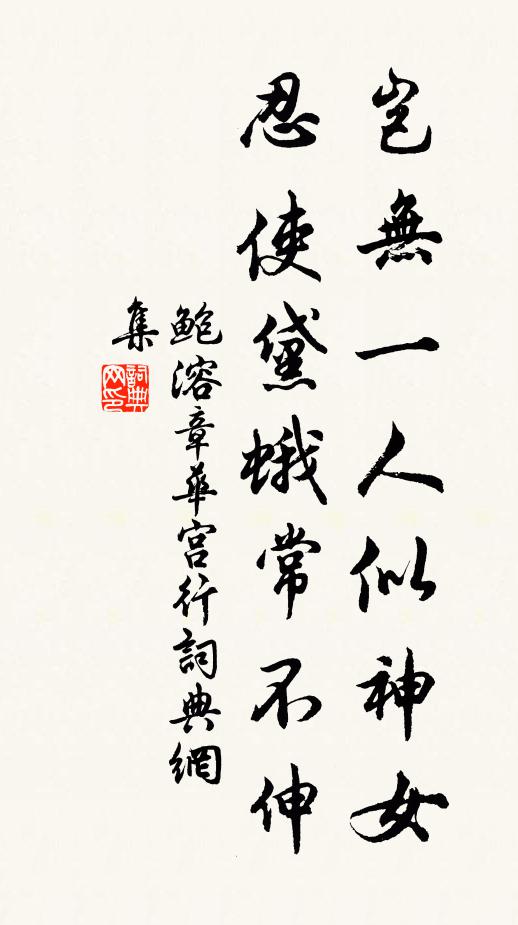 豈無一人似神女
忍使黛蛾常不伸
鲍溶章華宮行詞典網
集
詞典
网印